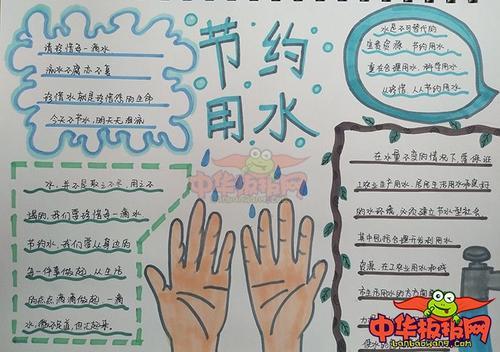 节约
用水
请珍惜每一滴水
流水不腐
珍惜水就是珍惜您的生命
今天不节水，明天无泪流
水是不可替代的
生态资源 节约用水
重在合理用水，科学用水
人人节约用水
水，并不是取之不尽，用之不
竭的，我们要珍惜每一滴水
节约水，我们要从身边的
每一件事做起，从生活
的点点滴滴做起，一滴
水，微不足道，但
在水量不变的情况下，要保证
工农业生产用水，居民生活用水和良好
的水环境，必须建立节水型社会
其中包括合理开发利用水
资源，在工农业用水和城
市生活用水的方方面面
中华板报网
中华板报网
banbaowang.com